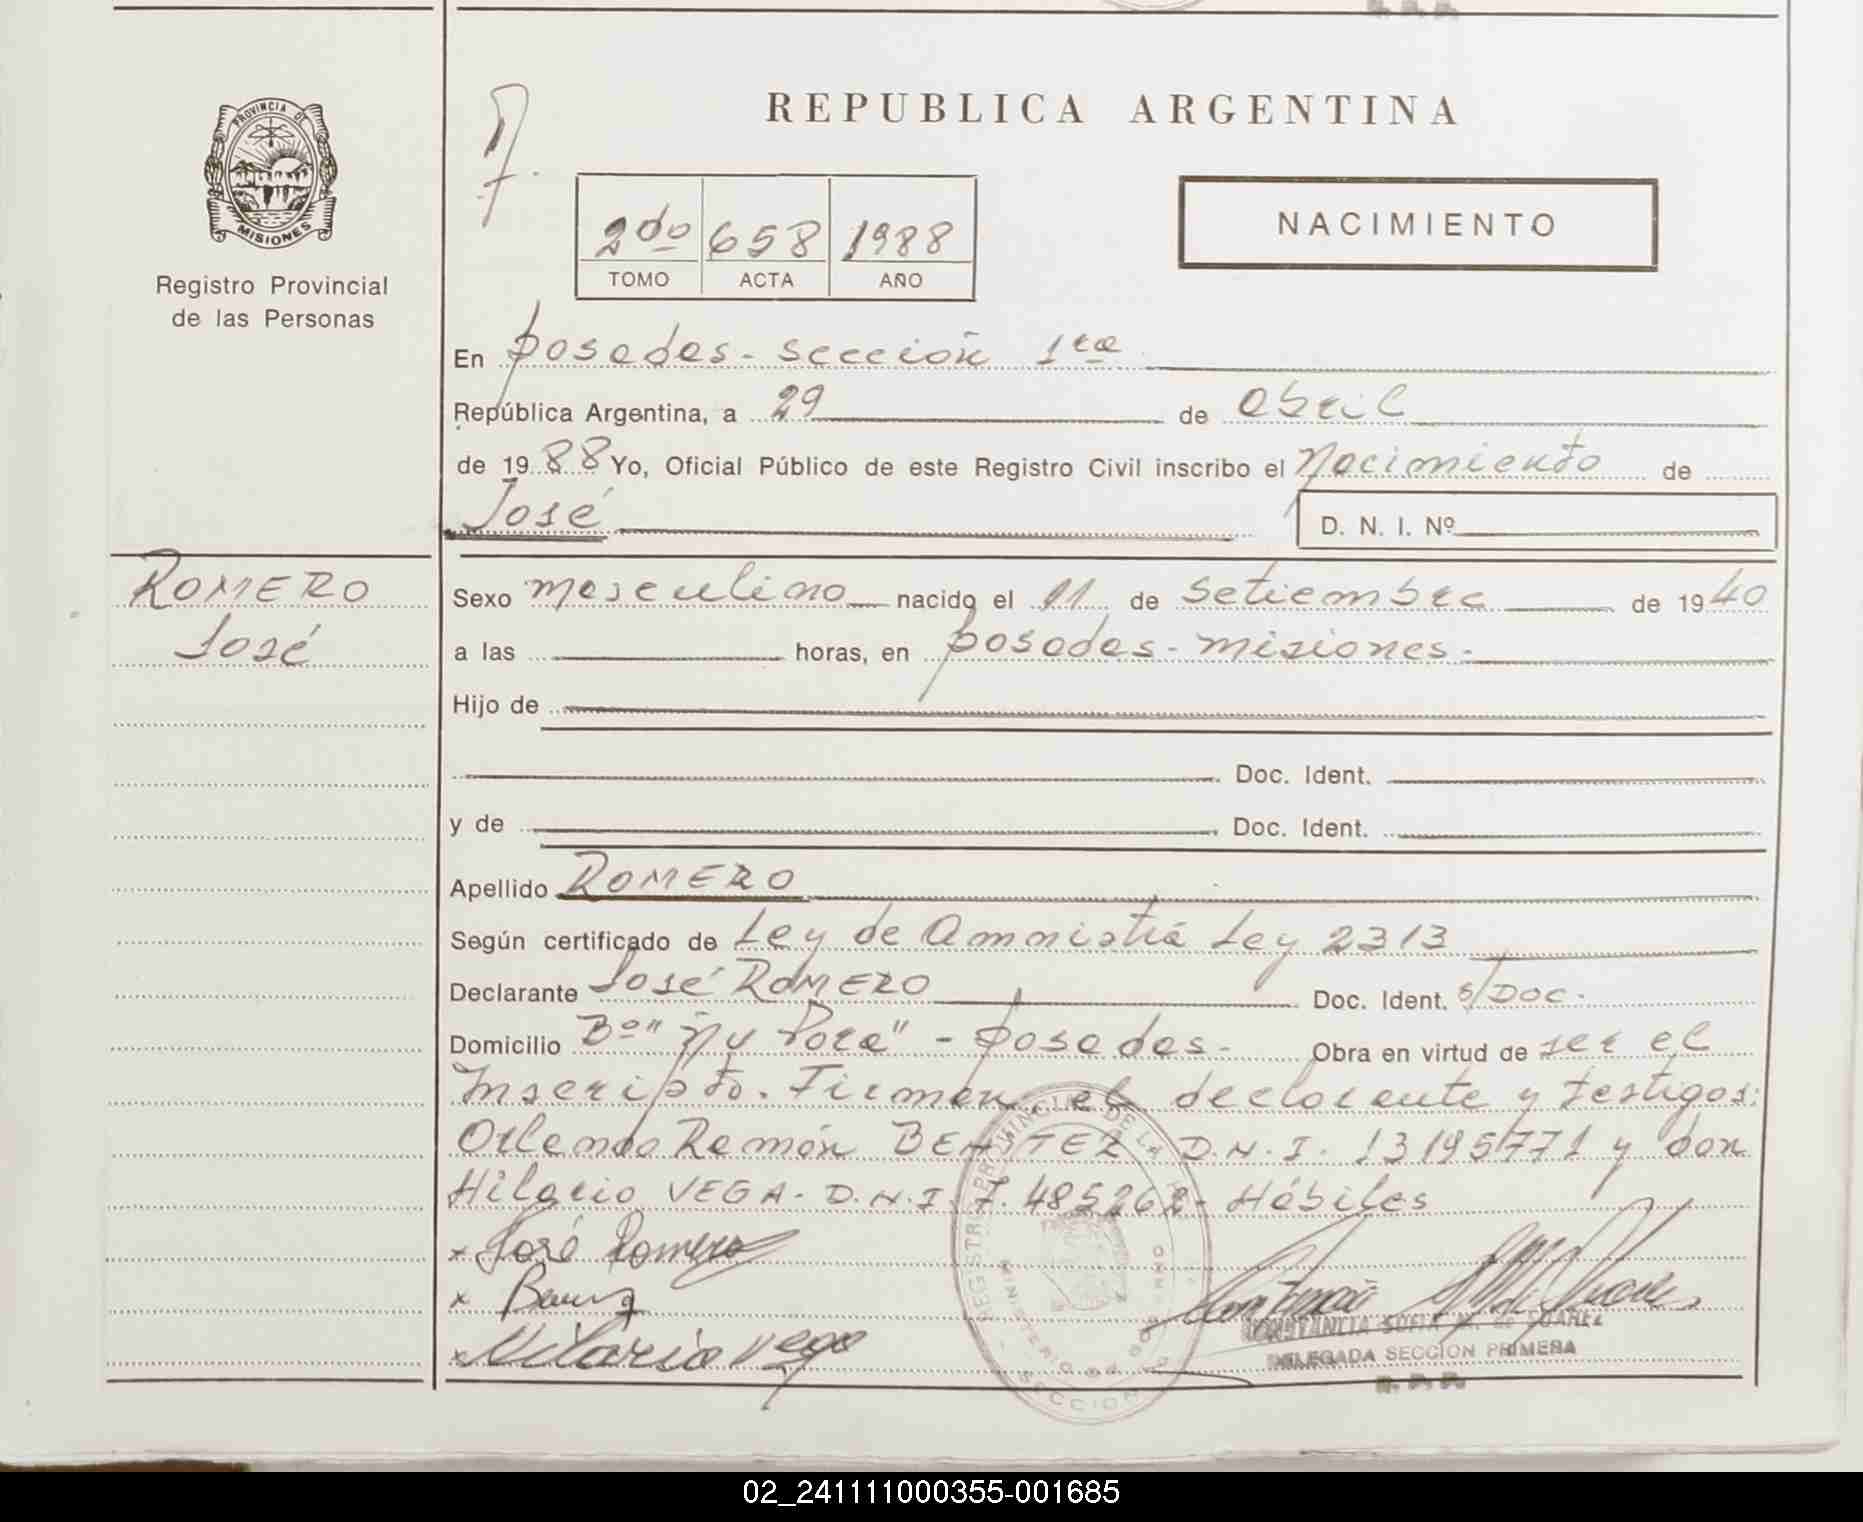 REPUBLICA ARGENTINA
PROVINCIA DE
MISIONES
Registro Provincial
de las Personas
2do 658 1988
TOMO ACTA AÑO
NACIMIENTO
En Posadas - sección 1ra
República Argentina, a 29 de Abril
de 1988 Yo, Oficial Público de este Registro Civil inscribo el Nacimiento de
José D. N. I. Nº
ROMERO
José
Sexo masculino nacido el 11 de Setiembre de 1940
a las horas, en Posadas - Misiones -
Hijo de
Doc. Ident.
y de Doc. Ident.
Apellido ROMERO
Según certificado de Ley de Amnistía Ley 2313
Declarante José ROMERO Doc. Ident. s/Doc.
Domicilio Bº "Ñu Porá" - Posadas - Obra en virtud de ser el
Inscripto. Firman, el declarante y testigos:
Orlando Ramón BENITEZ D.N.I. 13195771 y don
Hilario VEGA - D.N.I. 7.485262 - Hábiles
x José Romero
x
x Hilario Vega
CONSTANCIA SOFIA M. de SUAREZ
DELEGADA SECCION PRIMERA
R. P. P.
02_241111000355-001685